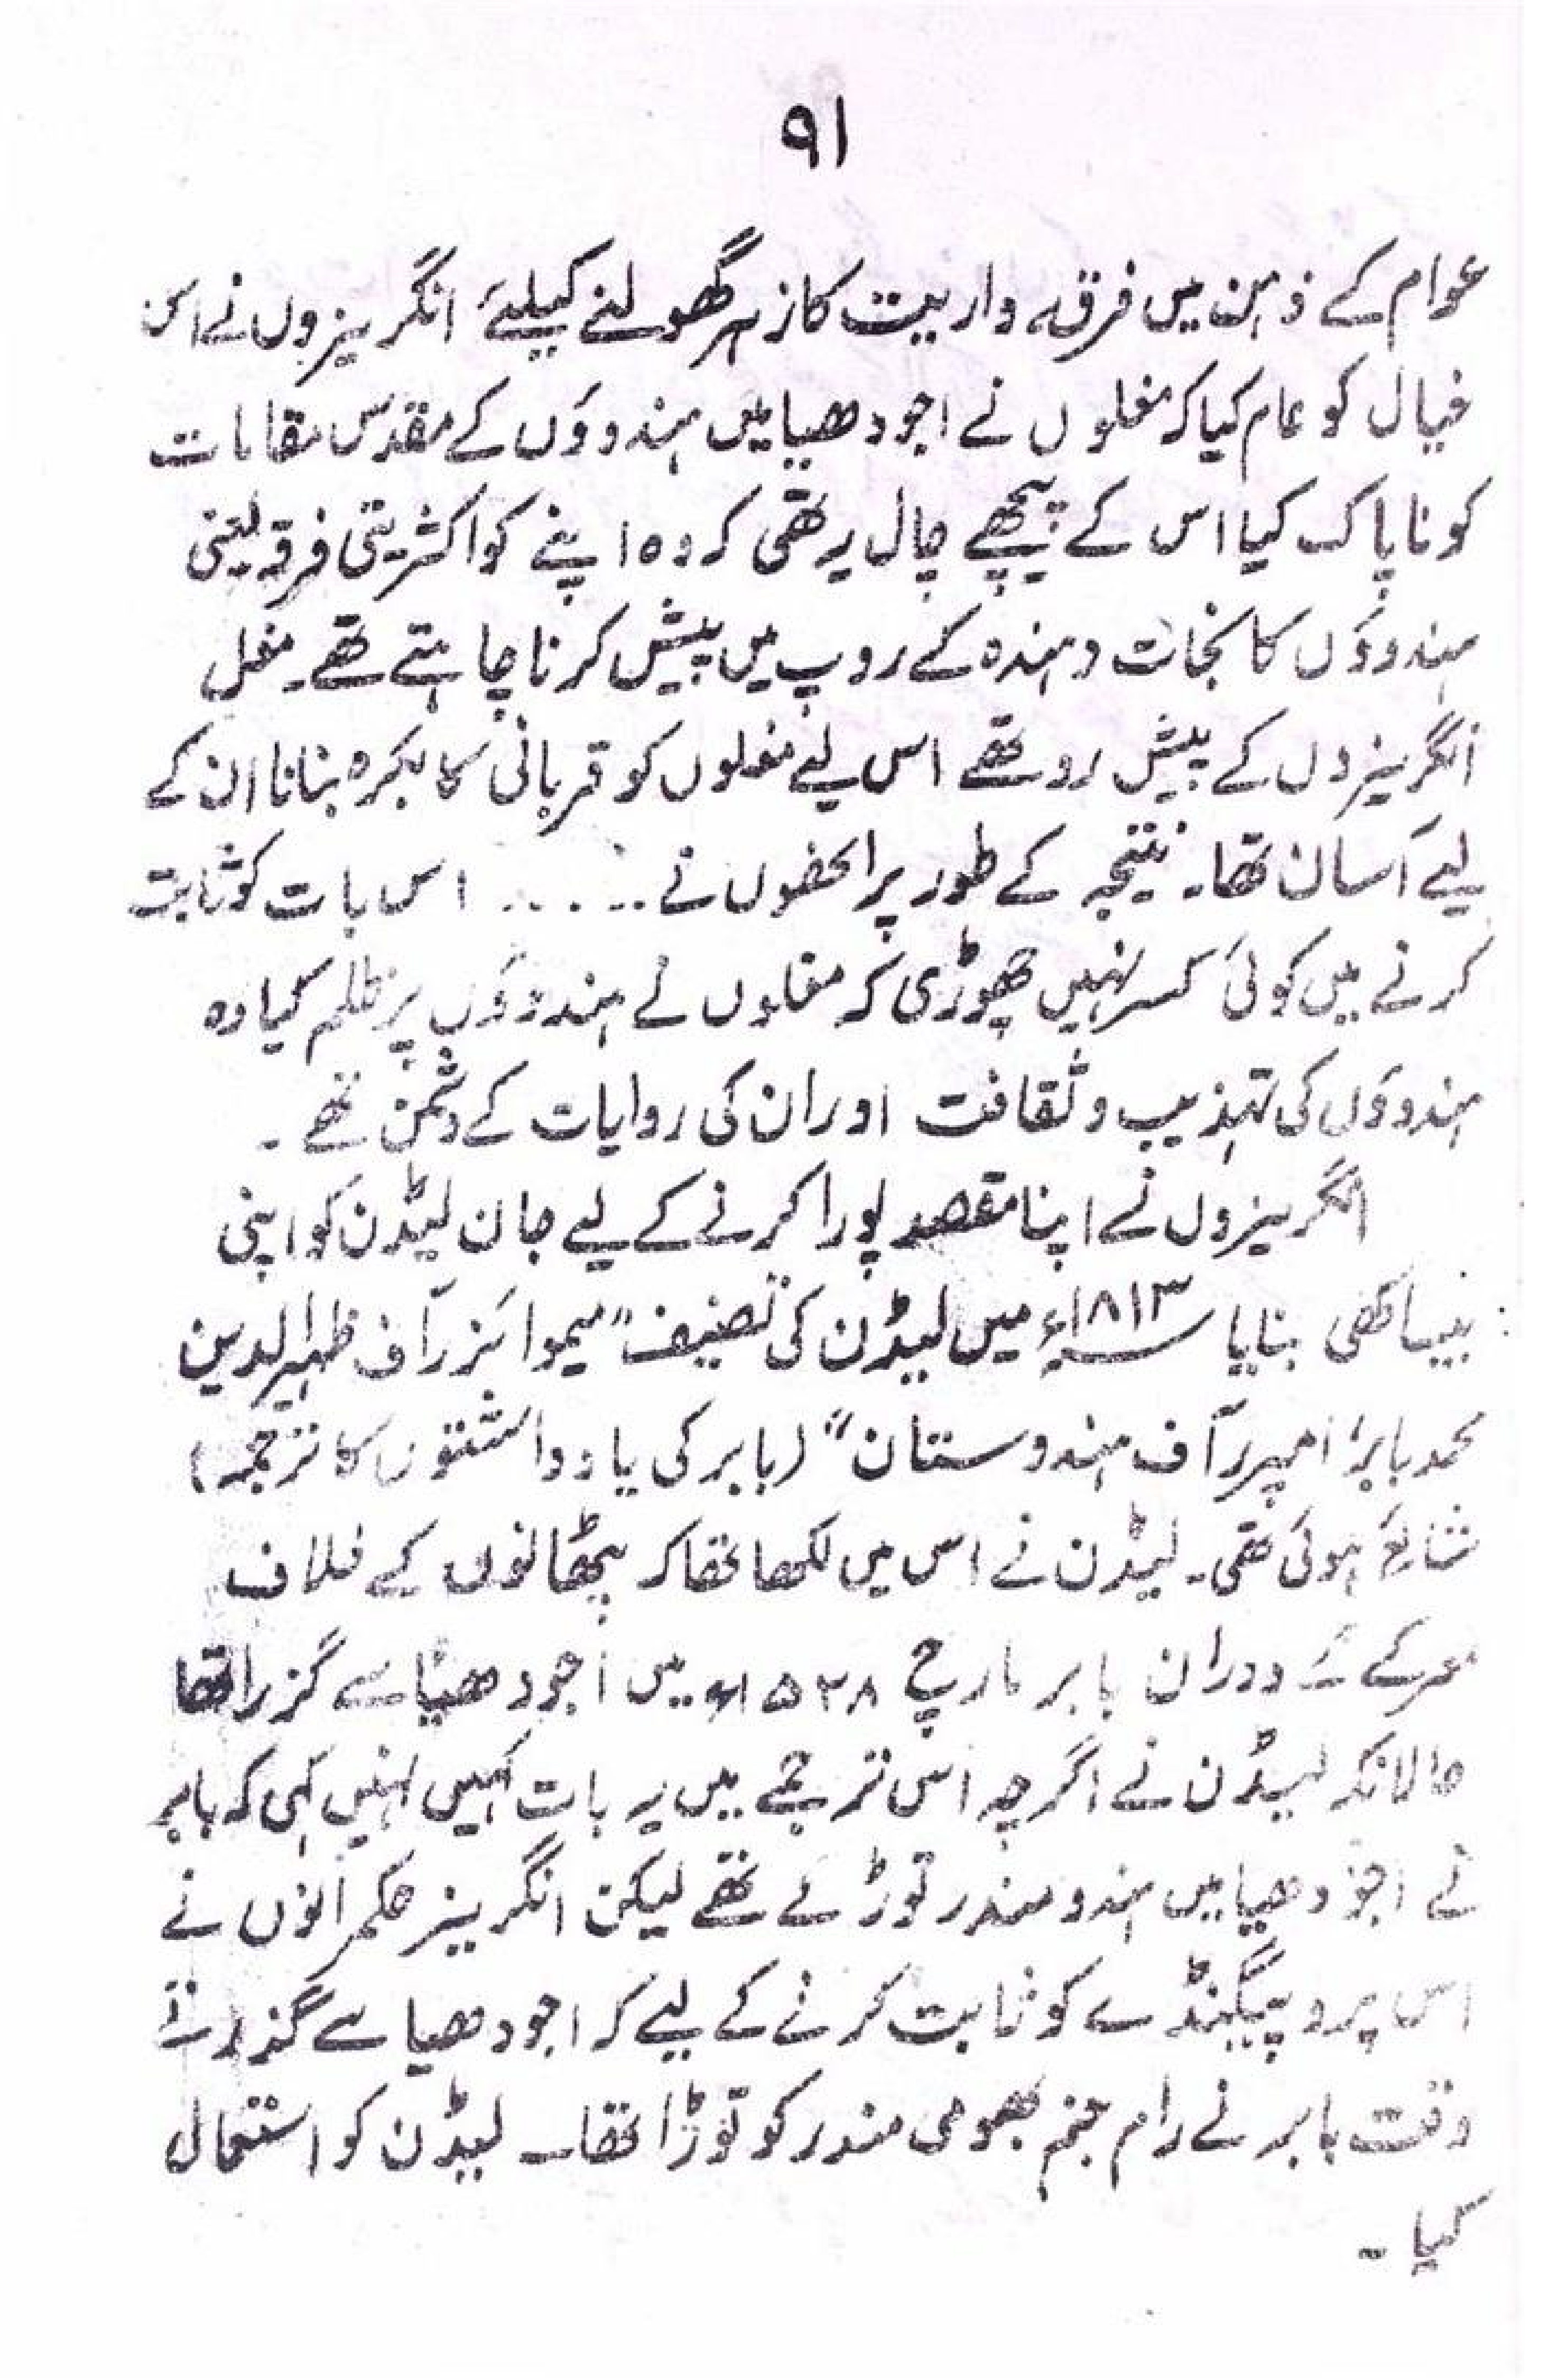 ۹۱
عوام کے ذہن میں فرقہ واریت کا زہر گھولنے کیلئے انگریزوں نے اس
خیال کو عام کیا کہ مغلوں نے اجودھیا میں ہندوؤں کے مقدس مقامات
کو ناپاک کیا اس کے پیچھے چال یہ تھی کہ وہ اپنے کو اکثریتی فرقہ یعنی
ہندوؤں کا نجات دہندہ کے روپ میں پیش کرنا چاہتے تھے۔ مغل
انگریزوں کے پیش رو تھے اس لیے مغلوں کو قربانی کا بکرہ بنانا ان کے
لیے آسان تھا۔ نتیجہ کے طور پر انھوں نے ...... اس بات کو ثابت
کرنے میں کوئی کسر نہیں چھوڑی کہ مغلوں نے ہندوؤں پر ظلم کیا وہ
ہندوؤں کی تہذیب و ثقافت اور ان کی روایات کے دشمن تھے۔
انگریزوں نے اپنا مقصد پورا کرنے کے لیے جان لیڈن کو اپنی
بیساکھی بنایا ۱۸۱۳ء میں لیڈن کی تصنیف "میموائرز آف ظہیرالدین
محمد بابر، امپرر آف ہندوستان" (بابر کی یادداشتوں کا ترجمہ)
شائع ہوئی تھی۔ لیڈن نے اس میں لکھا تھا کہ پٹھانوں کے خلاف
معرکے کے دوران بابر مارچ ۱۵۲۸ء میں اجودھیا سے گزرا تھا
حالانکہ لیڈن نے اگرچہ اس ترجمے میں یہ بات کہیں نہیں کہی کہ بابر
نے اجودھیا میں ہندو مندر توڑے تھے لیکن انگریز حکمرانوں نے
اس پروپیگنڈے کو ثابت کرنے کے لیے کہ اجودھیا سے گذرتے
وقت بابر نے رام جنم بھومی مندر کو توڑا تھا۔ لیڈن کو استعمال
کیا۔